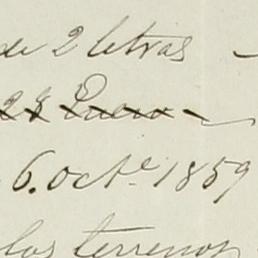 de 2 letras
28 Enero
6. oct.e 1859
los terrenos